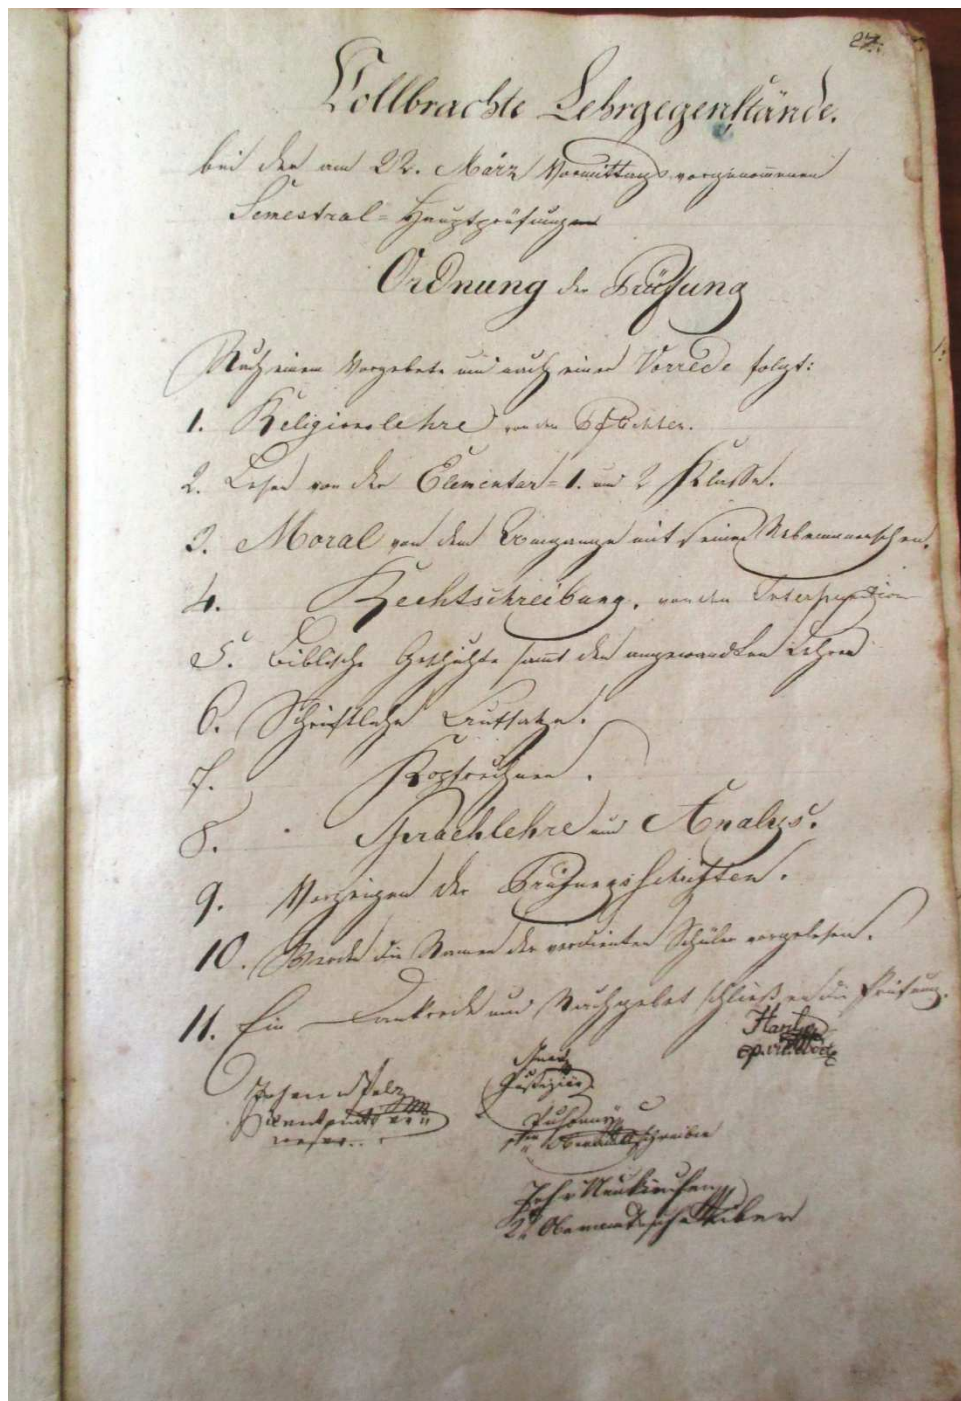 27.
Vollbrachte Lehrgegenstände.
bei der am 22. März Vormittags vorgenommenen
Semestral-Hauptprüfungen
Ordnung der Prüfung
Nach einem Vorgebete und nach einer Vorrede folgt:
1. Religionslehre von den
2. Lesen von der Elementar= 1. und 2 Klasse.
3. Moral von dem Umgange mit seinen Nebenmenschen.
4. Rechtschreibung, von den
5. Biblische Geschichte sammt den angewandten Lehren
6. Schriftliche Aufsatze.
7. Kopfrechnen.
8. Sprachlehre und Analys.
9. Vorzeigen der Prüfungsschriften.
10. Werden die Namen der verdienten Schüler vorgelesen.
11. Ein Dankrede und Nachgebet schließen die Prüfung.
Johann Pelz
Justiziär
Oberamtsschreiber
2. Oberamtsschreiber